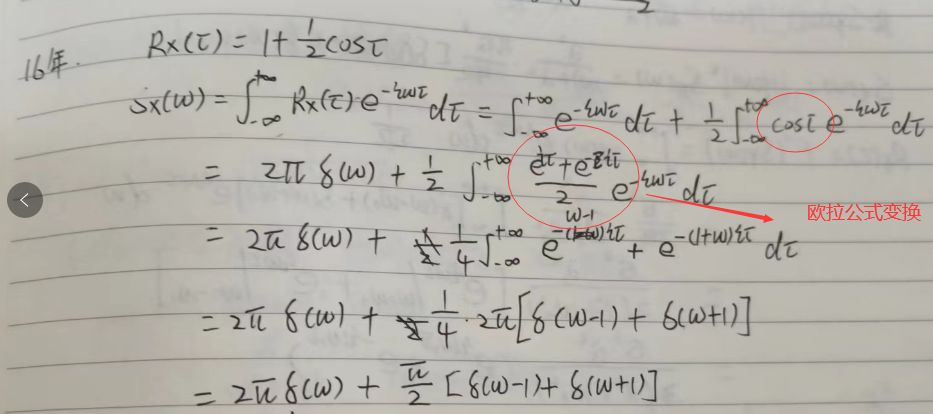 16年. Rx(τ) = 1 + 1/2 cosτ
Sx(ω) = ∫_{-∞}^{+∞} Rx(τ) e^{-iωτ} dτ = ∫_{-∞}^{+∞} e^{-iωτ} dτ + 1/2 ∫_{-∞}^{+∞} cosτ e^{-iωτ} dτ
= 2π δ(ω) + 1/2 ∫_{-∞}^{+∞} (e^{iτ} + e^{-iτ})/2 e^{-iωτ} dτ
欧拉公式变换
= 2π δ(ω) + 1/4 ∫_{-∞}^{+∞} e^{-(ω-1)iτ} + e^{-(1+ω)iτ} dτ
= 2π δ(ω) + 1/4 · 2π [δ(ω-1) + δ(ω+1)]
= 2π δ(ω) + π/2 [δ(ω-1) + δ(ω+1)]